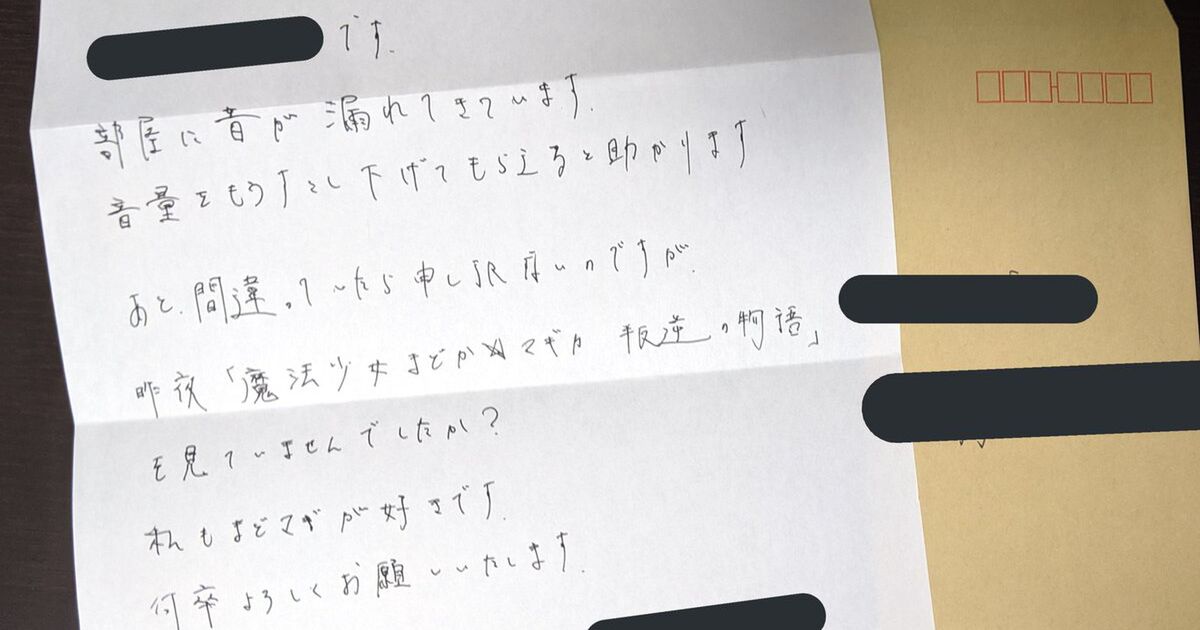 です.
部屋に音が漏れてきています.
音量をもう少し下げてもらえると助かります
あと、間違っていたら申し訳ないのですが.
昨夜「魔法少女まどかマギカ 叛逆の物語」
を見ていませんでしたか?
私もまどマギが好きです.
何卒よろしくお願いいたします.